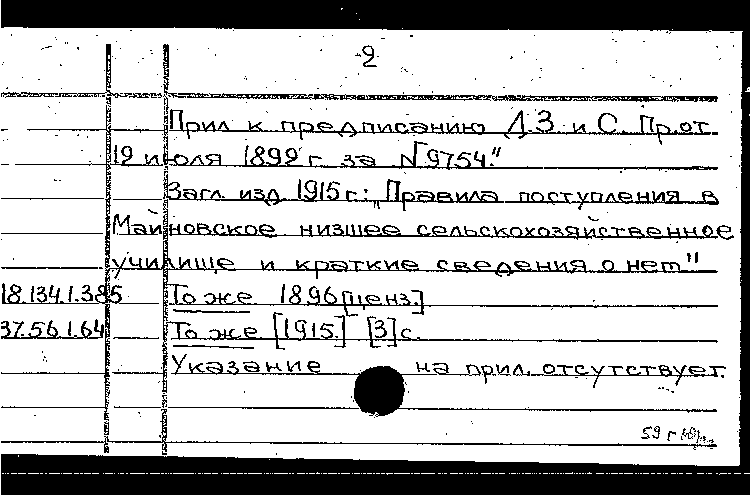 2
Прил к предписанию Д.З и С. Пр.от
12 июля 1892 г за №9754."
Загл. изд 1915 г: „Правила поступления в
Майновское низшее сельскохозяйственное
училище и краткие сведения о нем"
18.134.1.385 То же 1896 [ценз.]
37.56.1.64 То же [1915.] [3] с.
Указание на прил. отсутствует.
59 г